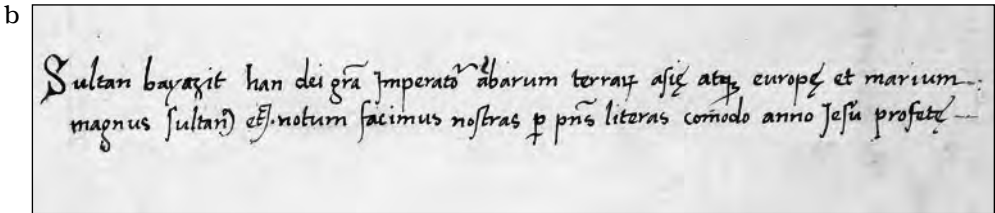 b
Sultan bayazit han dei grã Imperator ãbarum terraꝝ asię atqꝫ europę et marium
magnus sultanꝰ etꝭ. notum facimus nostras ꝑ pñs literas com̃odo anno Jesũ profetę